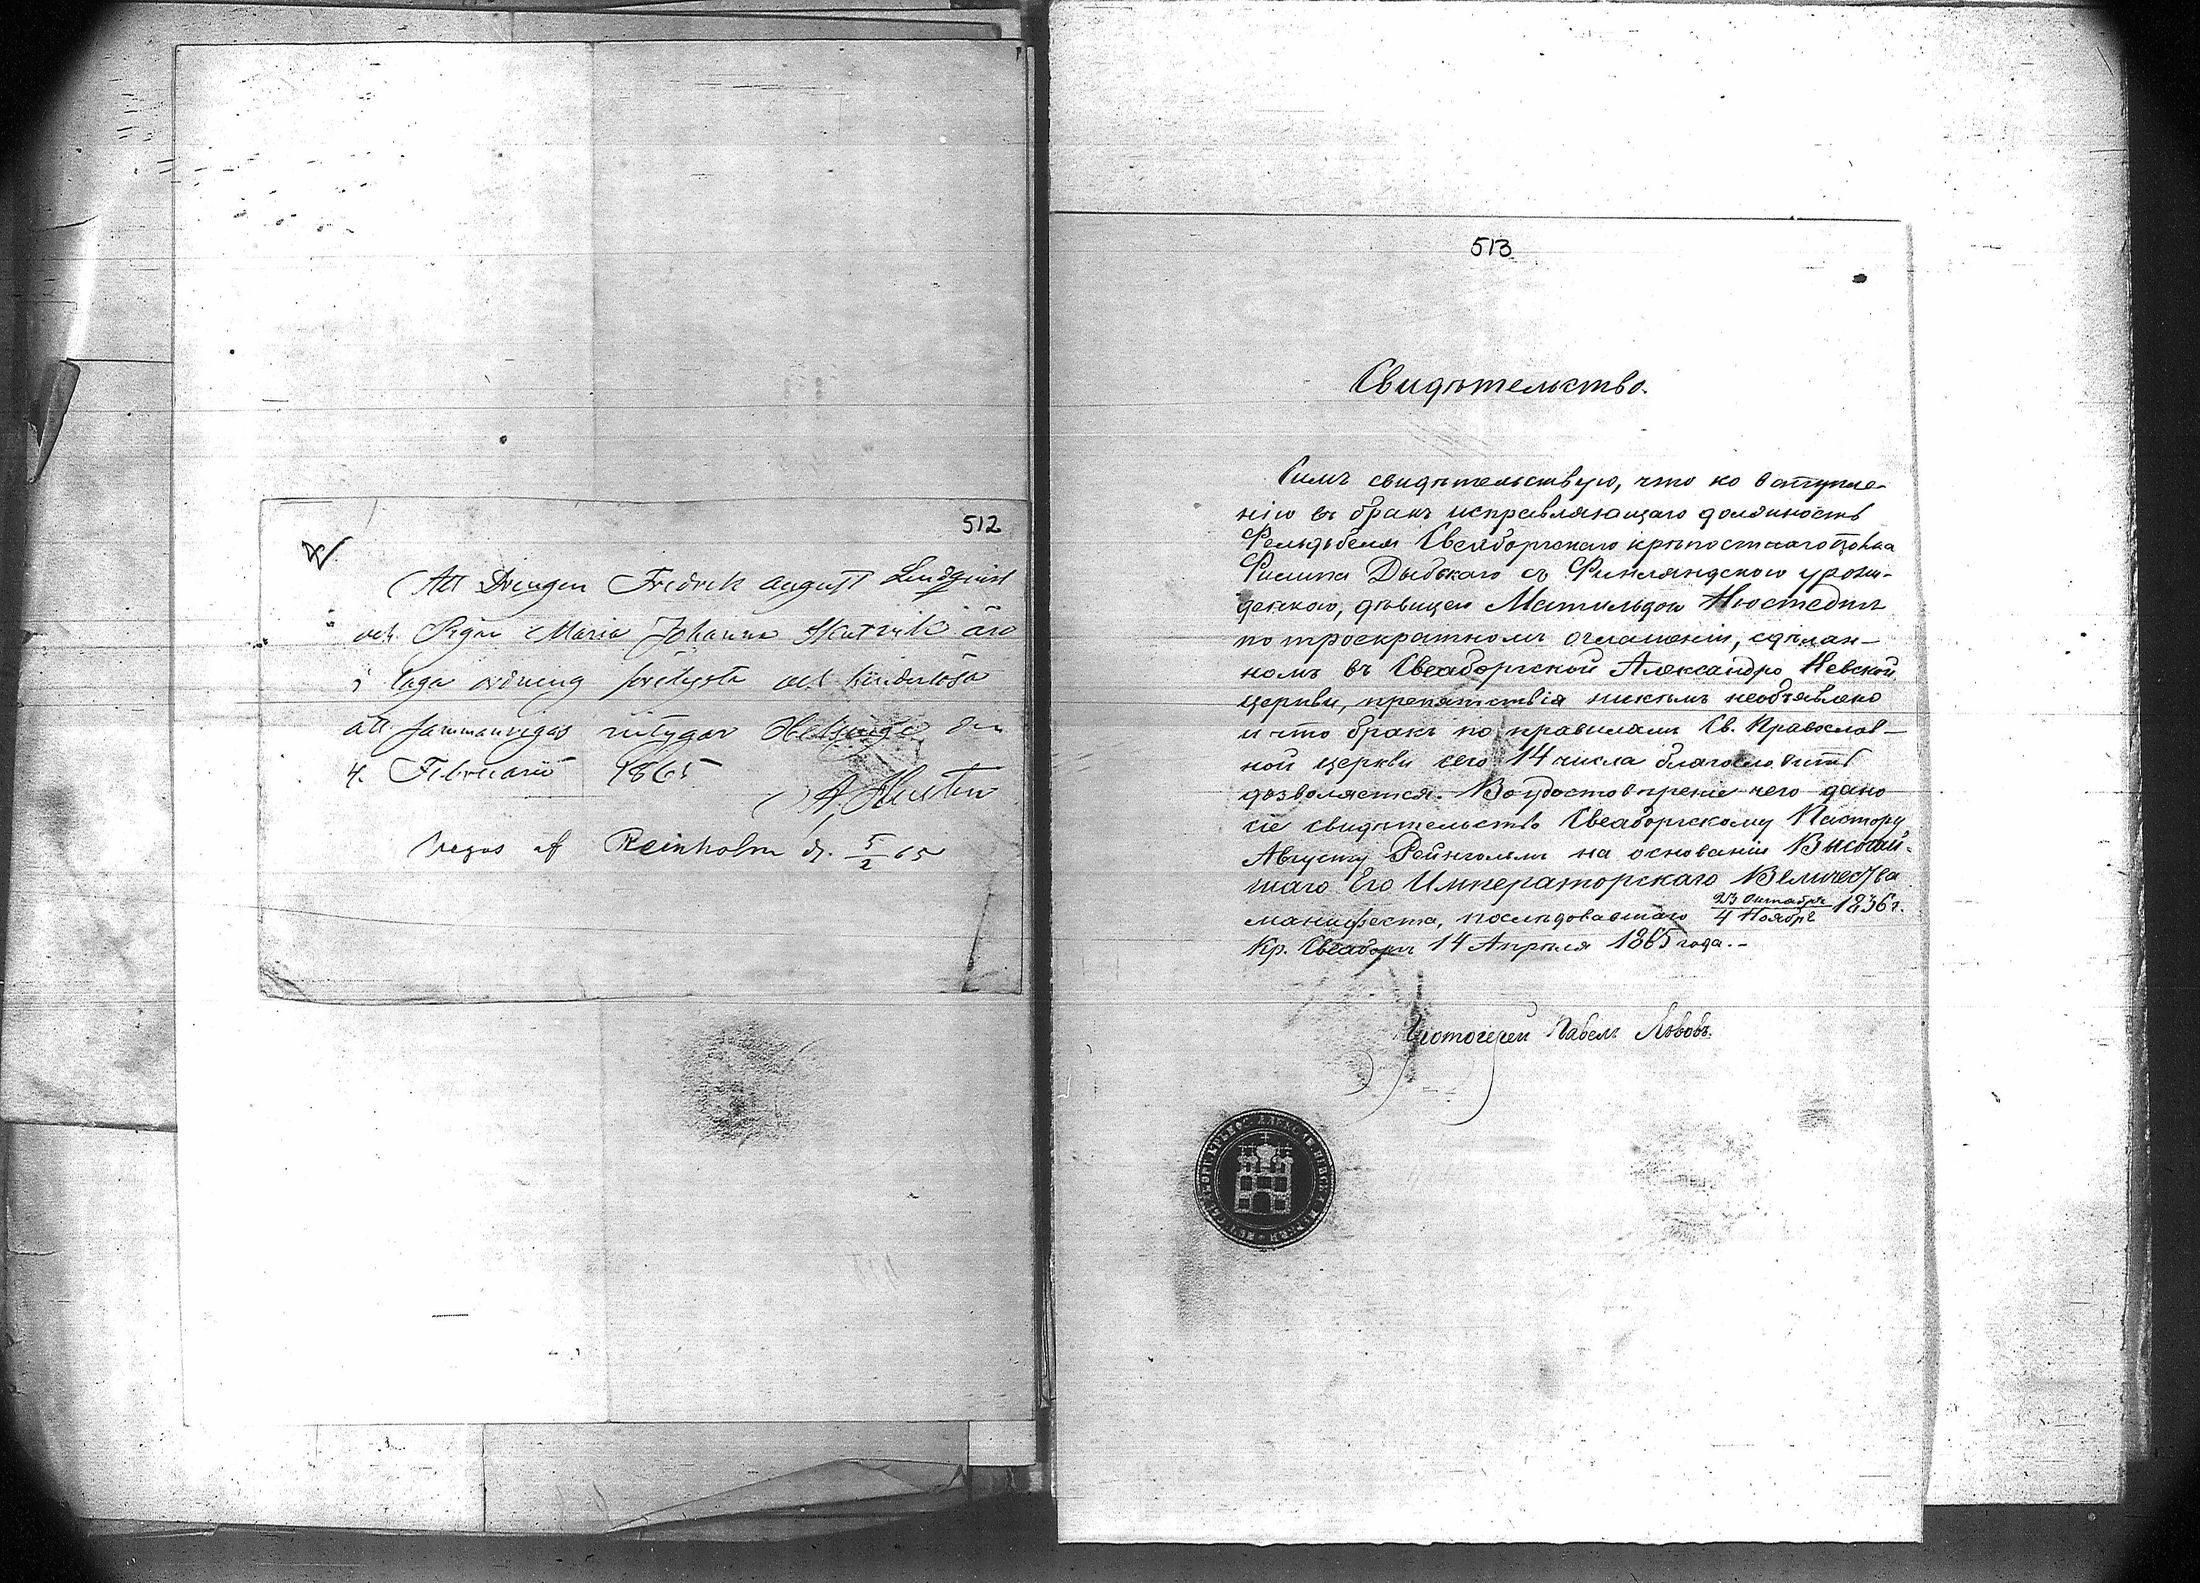 512
Att Drengen Fredrik August Lindqvist
och Pigan Maria Johanna Skutnik äro
i laga ordning förelysta och hinderlösa
att sammanvigas intygar Helsinge den
4. Februarii 1865
Vegos af Reinholm d. 5/2 65
513
Свидѣтельство.
Симъ свидѣтельствую, что ко вступле-
нію въ бракъ исправляющаго должность
Фельдфебеля Свеаборгскаго крѣпостнаго полка
Филипа Дыбскаго съ Финляндскою урожи-
денкою, дѣвицею Матильдою Нюстедтъ
по троекратномъ оглашеніи, сдѣлан-
номъ въ Свеаборгской Александро Невской
церкви, препятствія никѣмъ необъявлено
и что бракъ по правиламъ Св. Православ-
ной церкви сего 14 числа благословить
дозволяется. Во удостовѣреніе чего дано
сіе свидѣтельство Свеаборгскому Пастору
Августу Рейнгольмъ на основаніи Высочай-
шаго Его Императорскаго Величества
манифеста, послѣдовавшаго 23 Октября/4 Ноября 1836 г.
Кр. Свеаборгъ 14 Апрѣля 1865 года.-
Протоіерей Павелъ Львовъ.